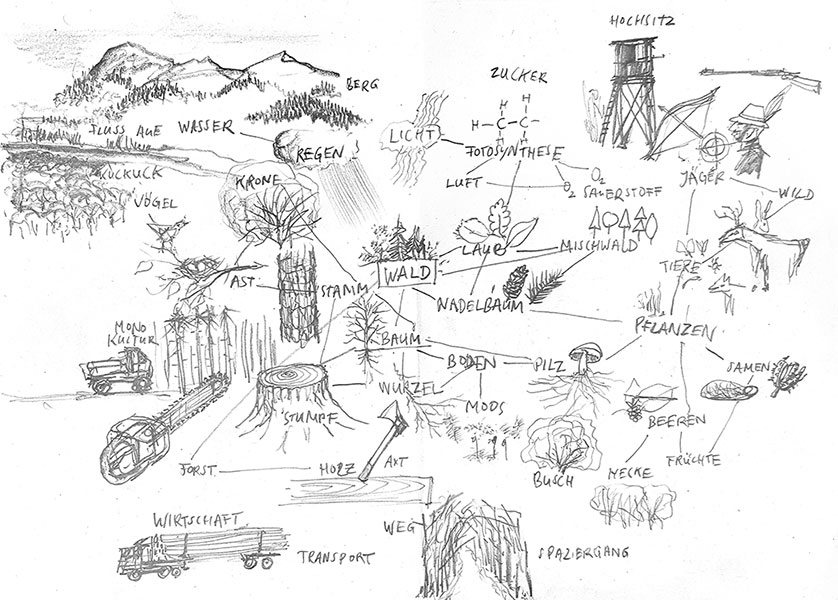 HOCHSITZ
ZUCKER
BERG
H H
H-C-C-
H H
LICHT
FLUSS AUE WASSER
REGEN
FOTOSYNTHESE
KUCKUCK
KRONE
LUFT
O2
O2 SAUERSTOFF
JÄGER
WILD
VÖGEL
LAUB
MISCHWALD
TIERE
WALD
AST
STAMM
NADELBAUM
MONO
KULTUR
BAUM
PFLANZEN
BODEN
PILZ
SAMEN
WURZEL
MOOS
STUMPF
BEEREN
AXT
FORST
HOLZ
BUSCH
HECKE
FRÜCHTE
WIRTSCHAFT
WEG
TRANSPORT
SPAZIERGANG